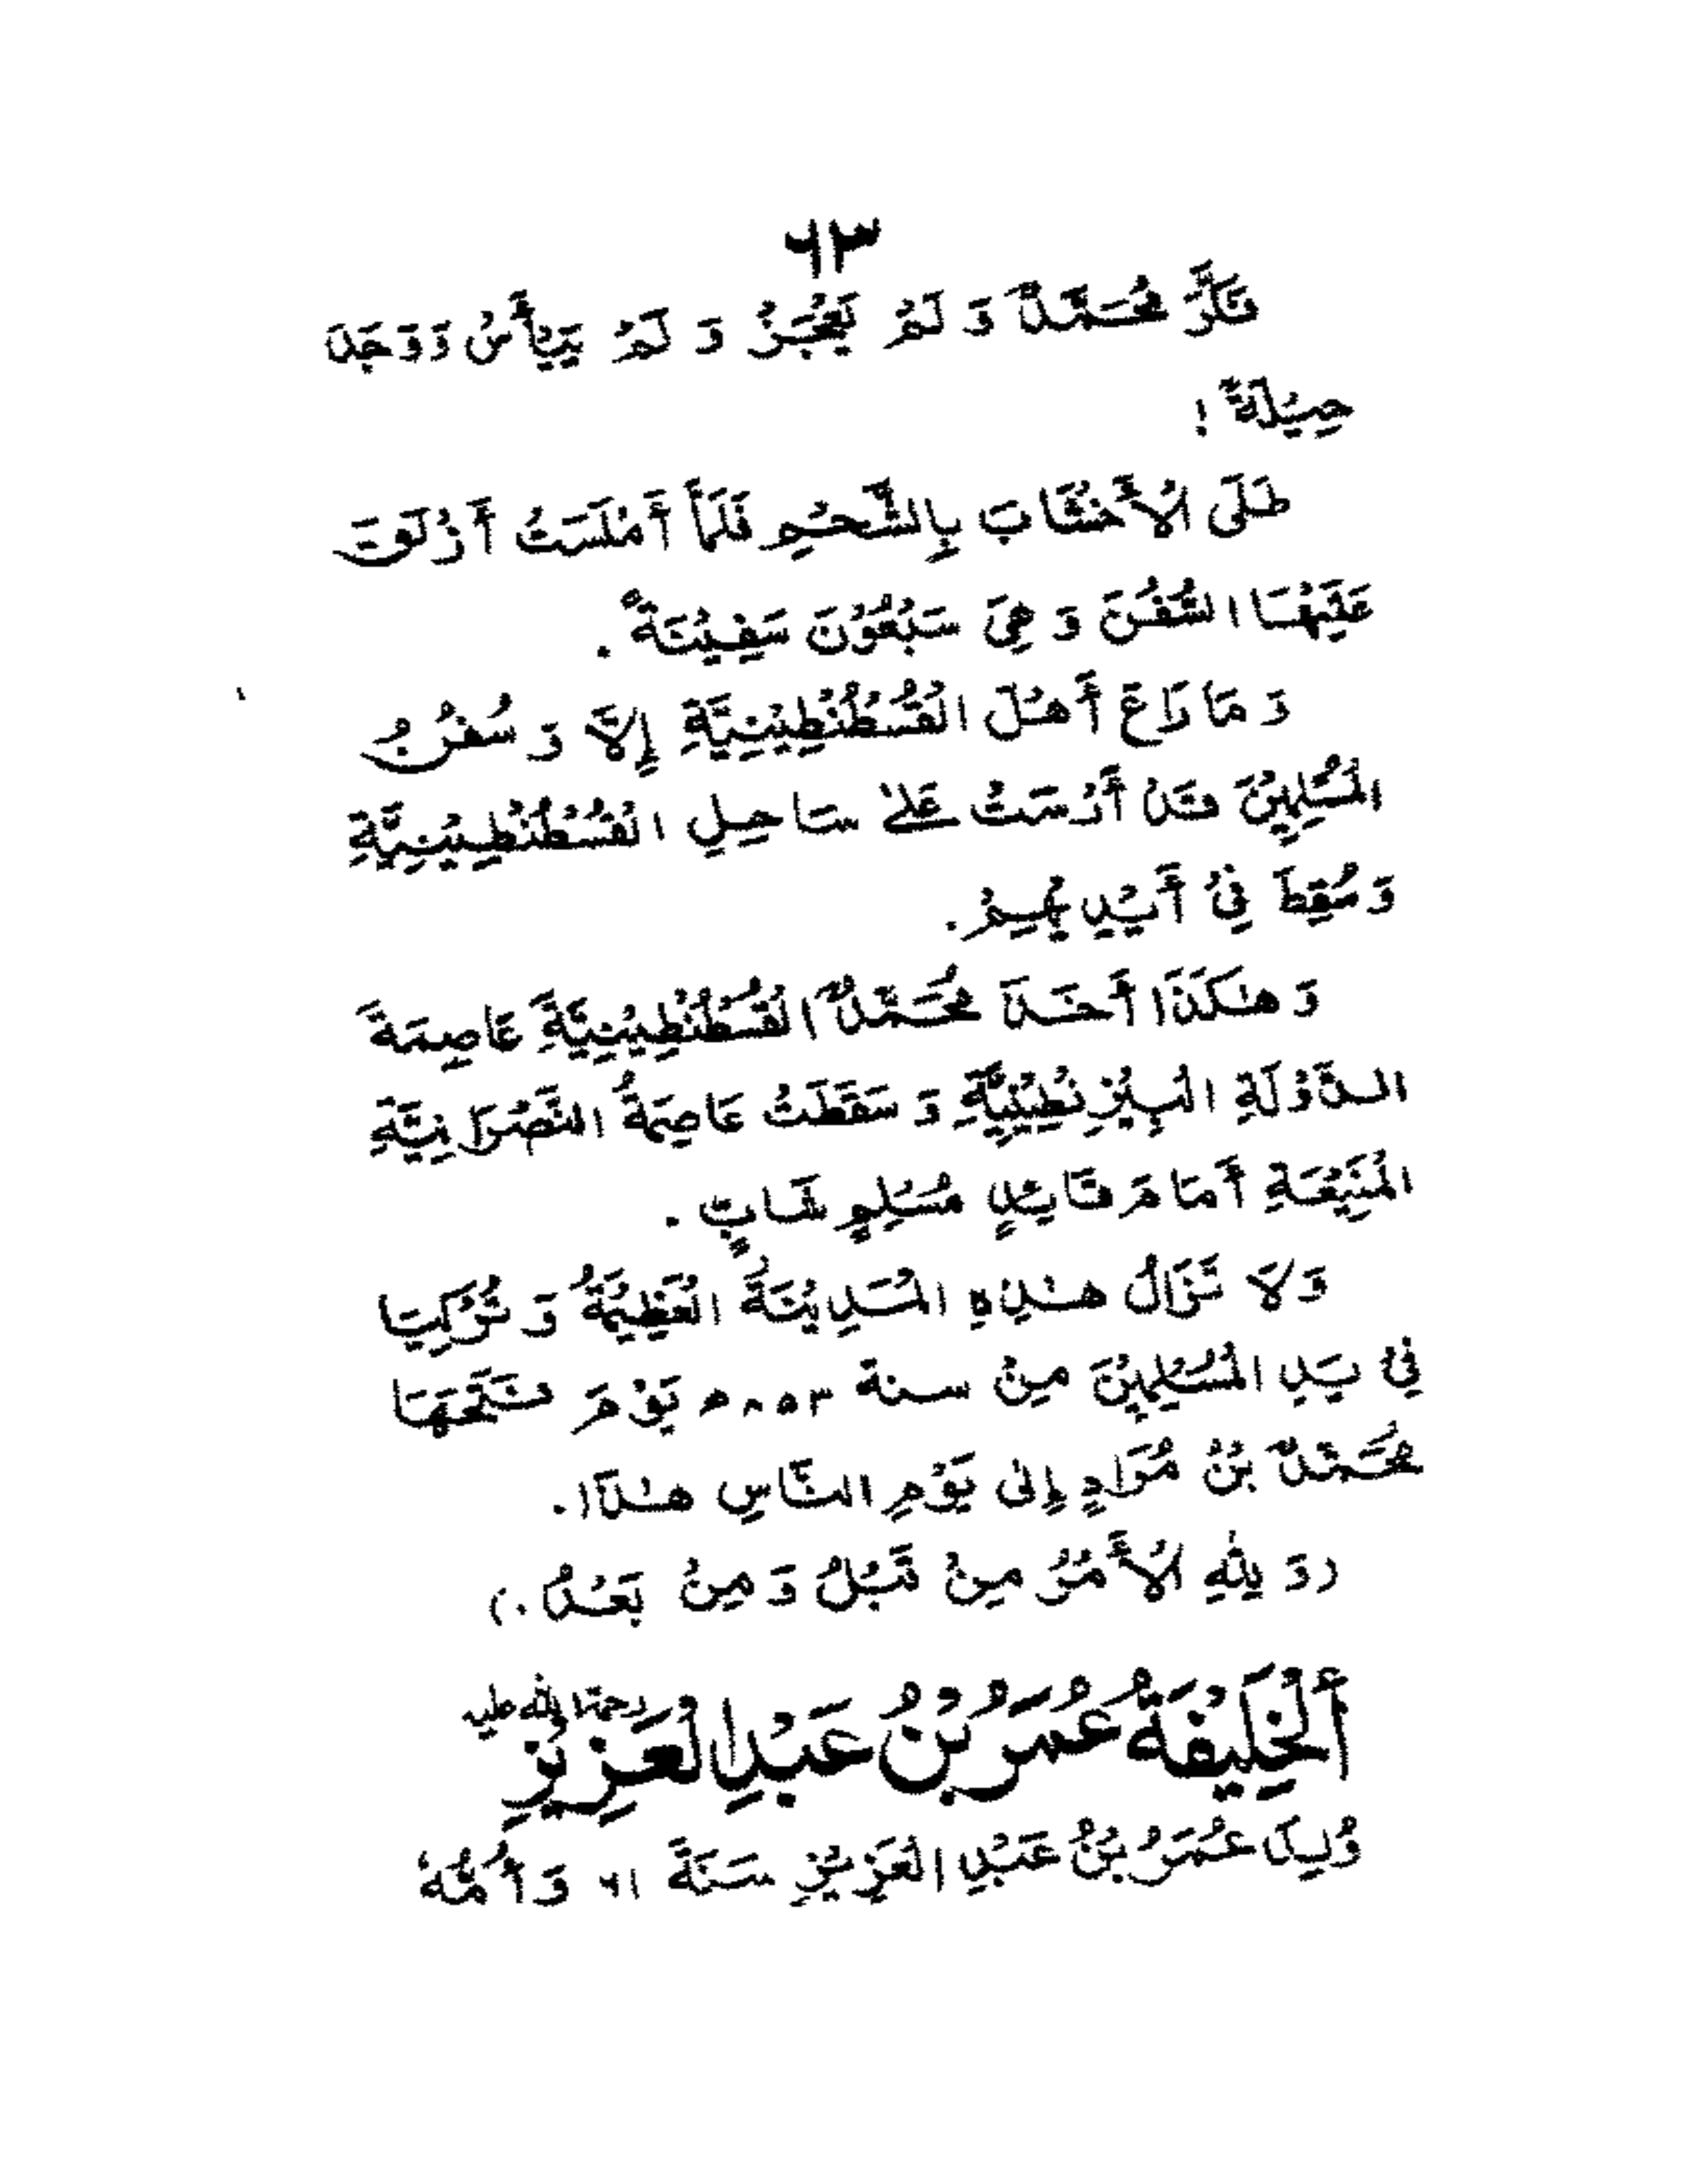 ٦٣
فَكَّرَ مُحَمَّدٌ وَ لَمْ يَعْجِزْ وَ لَمْ يَيْأَسْ وَوَجَدَ
حِيْلَةً !
طَلَى الْأَخْشَابَ بِالشَّحْمِ فَلَمَّا أَمْلَسَتْ أَزْلَقَ
عَلَيْهَا السُّفُنَ وَ هِيَ سَبْعُوْنَ سَفِيْنَةً .
وَ مَا رَاعَ أَهْلَ الْقُسْطُنْطِيْنِيَّةِ إِلاَّ وَ سُفُنُ
الْمُسْلِمِيْنَ قَدْ أَرْسَتْ عَلىٰ سَاحِلِ الْقُسْطُنْطِيْنِيَّةِ
وَ سُقِطَ فِيْ أَيْدِيهِمْ .
وَ هٰكَذَا أَخَذَ مُحَمَّدٌ الْقُسْطُنْطِيْنِيَّةَ عَاصِمَةَ
الدَّوْلَةِ الْبِيْزِنْطِيْنِيَّةِ وَ سَقَطَتْ عَاصِمَةُ النَّصْرَانِيَّةِ
الْمَنِيْعَةِ أَمَامَ قَائِدٍ مُسْلِمٍ شَابٍّ .
وَ لاَ تَزَالُ هٰذِهِ الْمَدِيْنَةُ الْعَظِيْمَةُ وَ تُرْكِيَا
فِيْ يَدِ الْمُسْلِمِيْنَ مِنْ سنة ٨٥٣ هـ يَوْمَ فَتَحَهَا
مُحَمَّدُ بْنُ مُرَادٍ إِلىٰ يَوْمِ النَّاسِ هٰذَا .
(وَ لِلّٰهِ الْأَمْرُ مِنْ قَبْلُ وَ مِنْ بَعْدُ .)
أَلْخَلِيْفَةُ عُمَرُ بْنُ عَبْدِ الْعَزِيْزِ رحمة الله عليه
وُلِدَ عُمَرُ بْنُ عَبْدِ الْعَزِيْزِ سَنَةَ ٦١ وَ أُمُّهُ